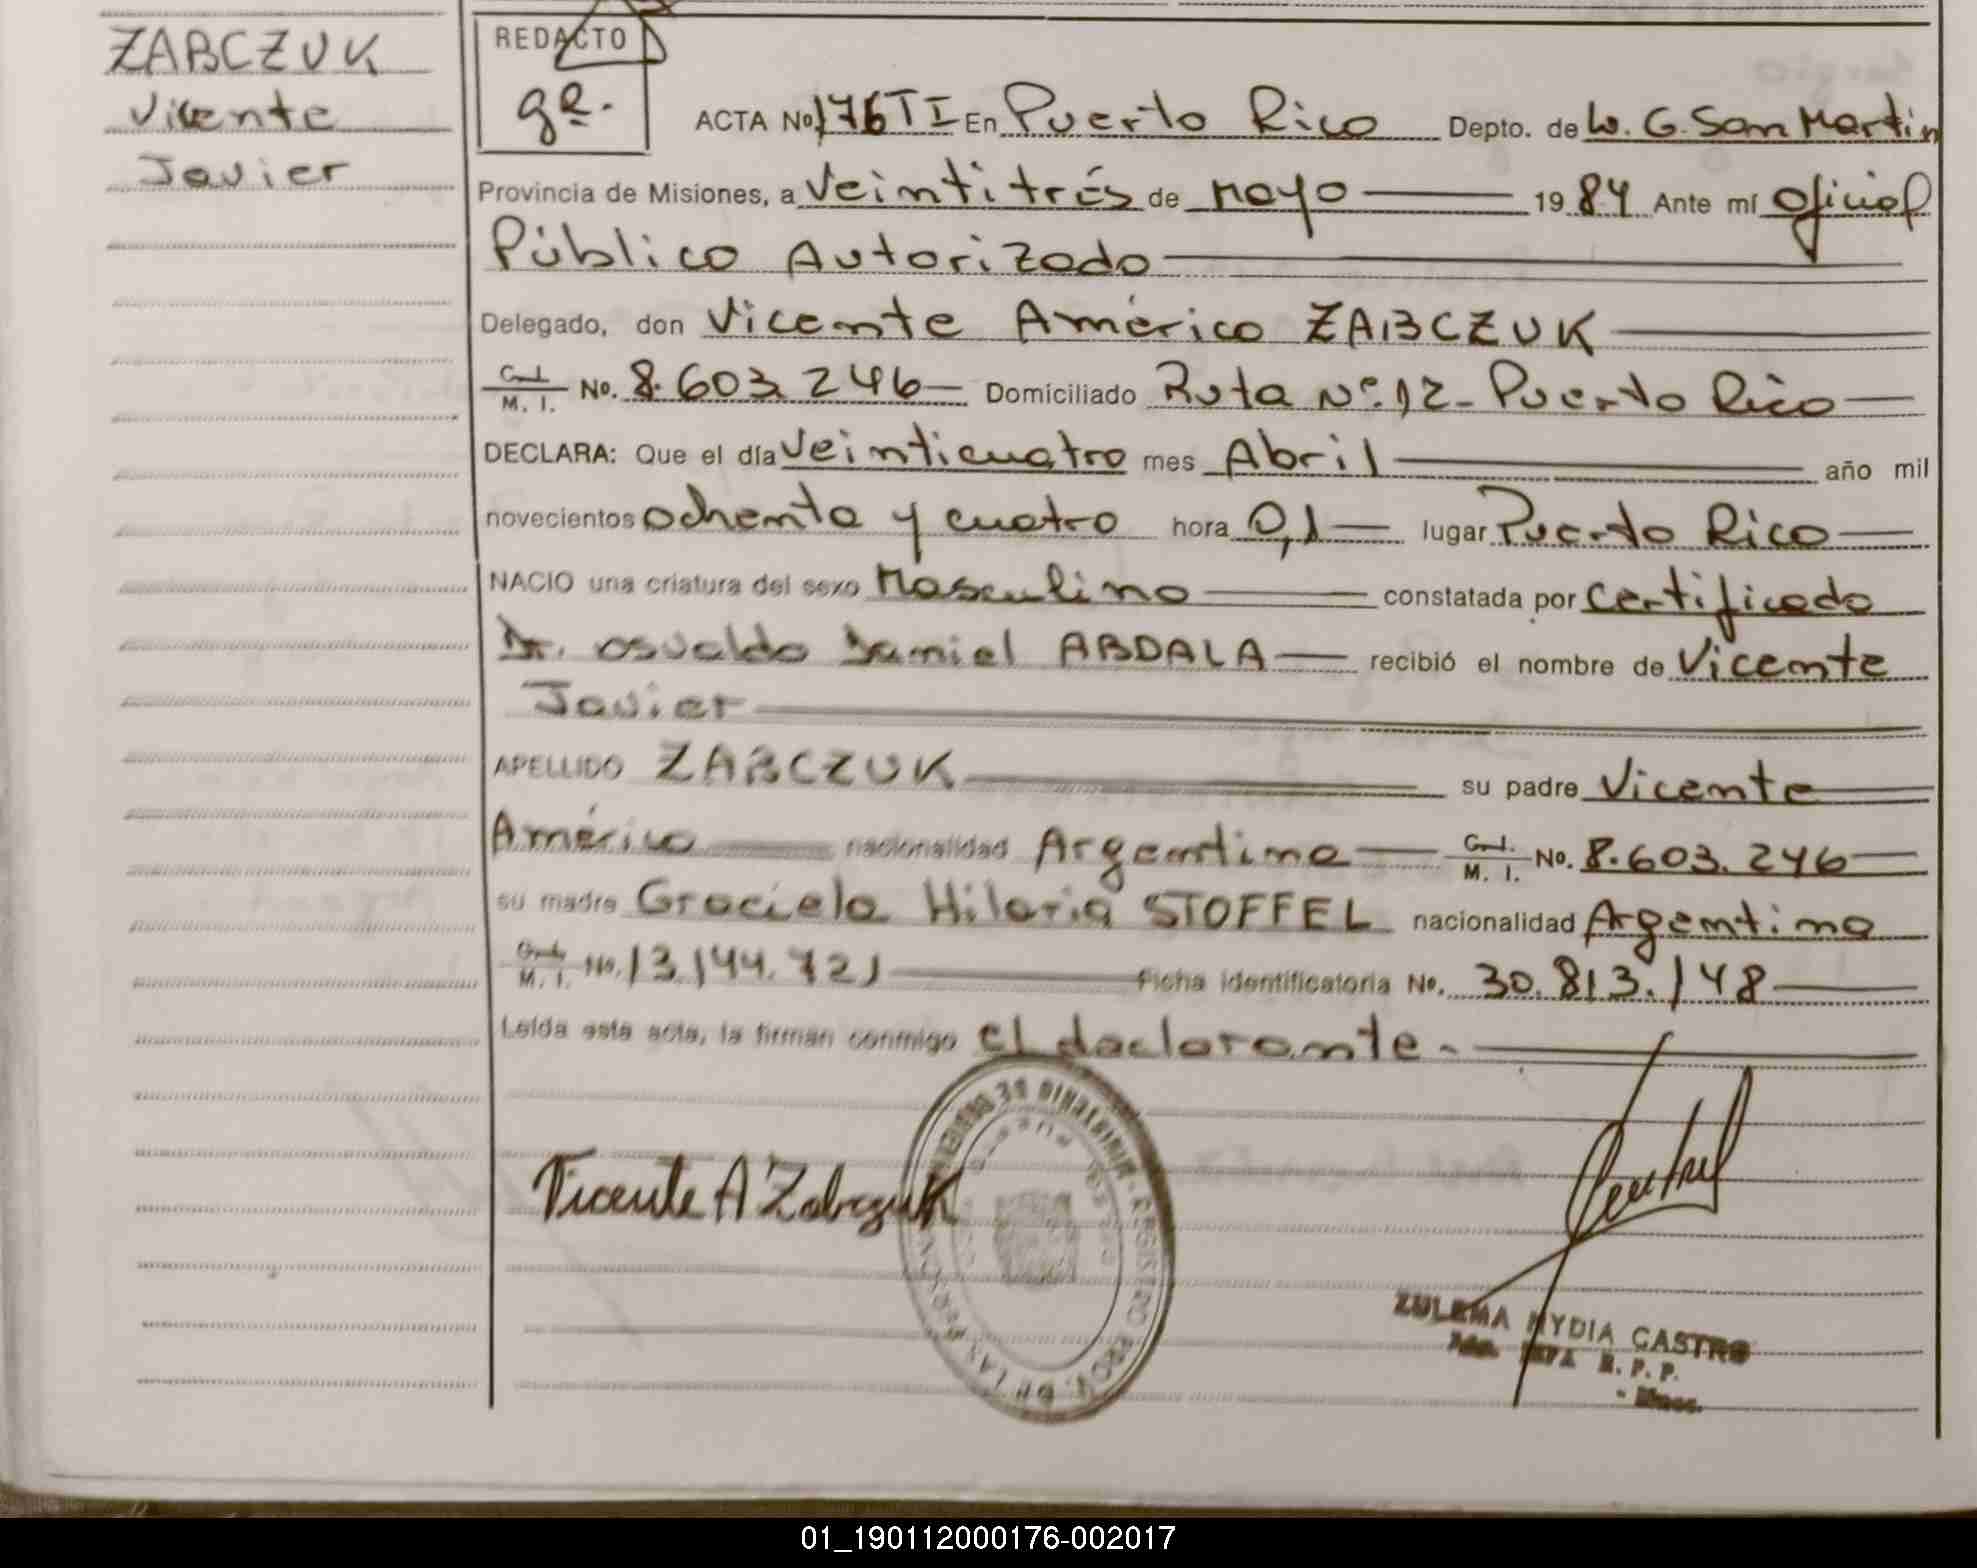 ZABCZUK
Vicente
Javier
REDACTO
ge.
ACTA No 176 TI En Puerto Rico Depto. de L. G. San Martin
Provincia de Misiones, a Veintitrés de Mayo 1984 Ante mí Oficial
Público Autorizado
Delegado, don Vicente Américo ZABCZUK
M. I. No. 8.603.246 Domiciliado Ruta Nº. 12 - Puerto Rico
DECLARA: Que el día Veinticuatro mes Abril año mil
novecientos ochenta y cuatro hora 0,1 lugar Puerto Rico
NACIO una criatura del sexo Masculino constatada por Certificado
Dr. Osvaldo Daniel ABDALA recibió el nombre de Vicente
Javier
APELLIDO ZABCZUK su padre Vicente
Américo nacionalidad Argentina M. I. No. 8.603.246
su madre Graciela Hilaria STOFFEL nacionalidad Argentina
M. I. No. 13.144.721 Ficha identificatoria No. 30.813.148
Leída esta acta, la firman conmigo el declarante.-
Vicente A Zabczuk
MINISTERIO DE GOBIERNO - REGISTRO PROV. DE LAS PERSONAS
PUERTO RICO
ZULEMA NYDIA CASTRO
R. P. P.
01_190112000176-002017